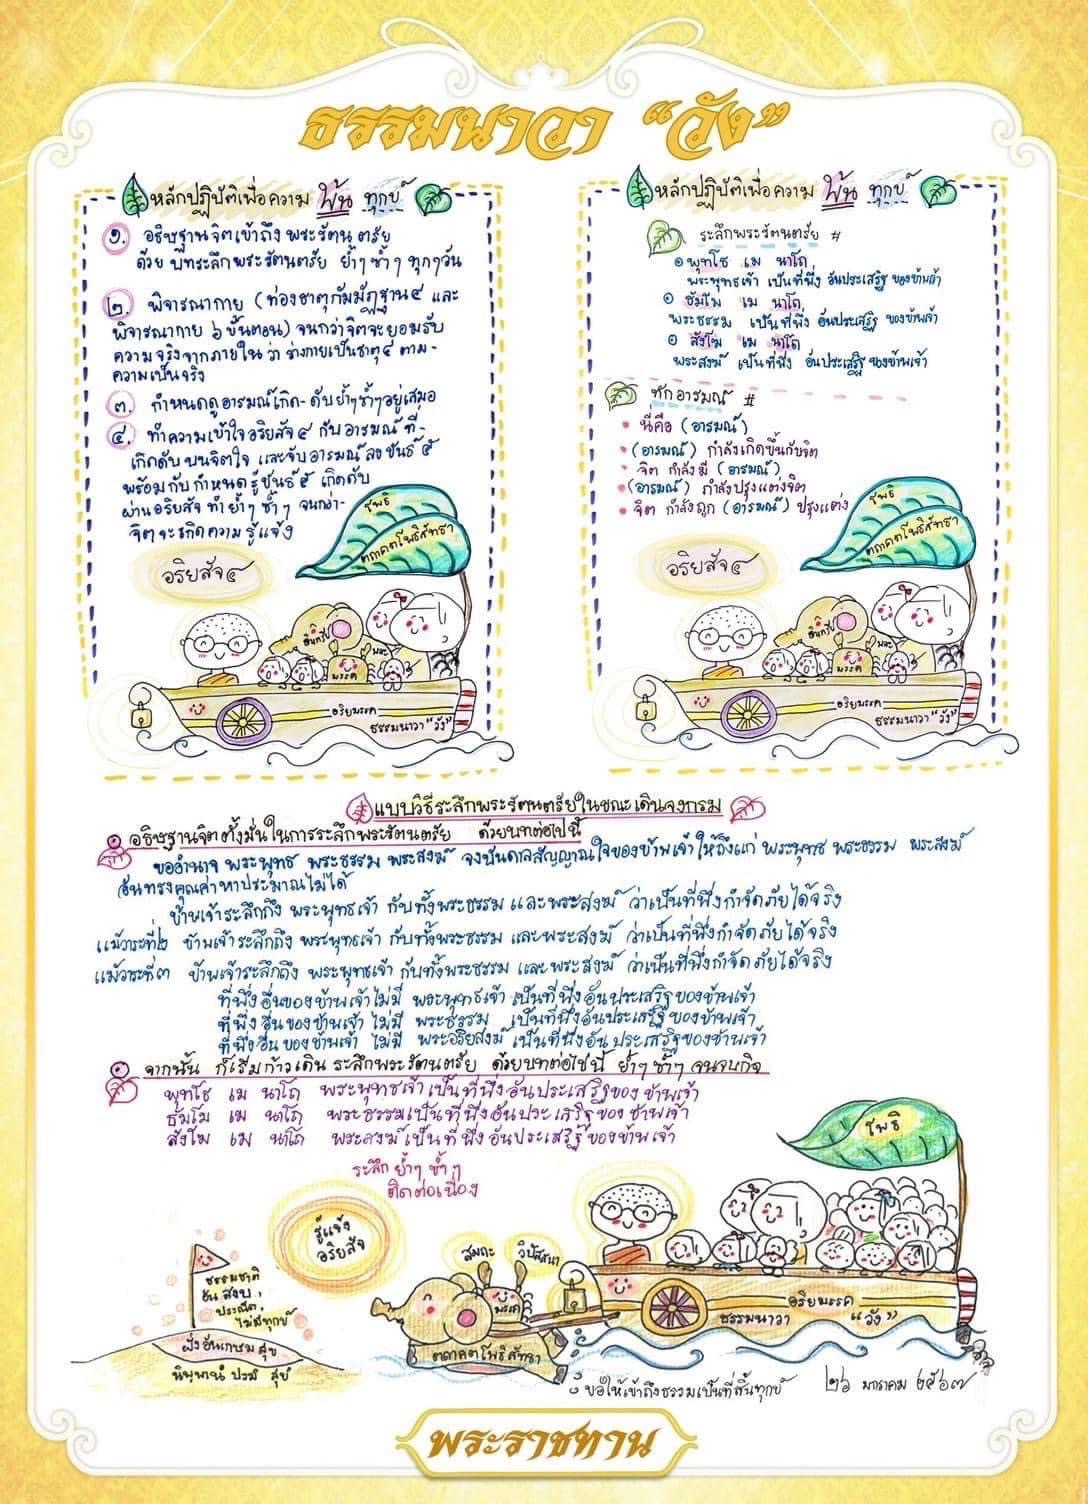 ธรรมนาวา “วัง”
หลักปฏิบัติเพื่อความ พ้น ทุกข์
๑. อธิษฐานจิตเข้าถึง พระรัตนตรัย
ด้วย บทระลึกพระรัตนตรัย ย้ำๆ ซ้ำๆ ทุกๆวัน
๒. พิจารณากาย (ท่องธาตุกัมมัฏฐาน๔ และ
พิจารณากาย ๖ ขั้นตอน) จนกว่าจิตจะยอมรับ
ความจริงจากภายใน ว่า ร่างกายเป็นธาตุ๔ ตาม-
ความเป็นจริง
๓. กำหนดดูอารมณ์เกิด-ดับย้ำๆซ้ำๆอยู่เสมอ
๔. ทำความเข้าใจอริยสัจ๔ กับอารมณ์ที่-
เกิดดับ บนจิตใจ และจับอารมณ์ลงขันธ์ ๕
พร้อมกับกำหนดรู้ขันธ์ ๕ เกิดดับ
ผ่านอริยสัจ ทำย้ำๆ ซ้ำๆ จนกว่า-
จิตจะเกิดความรู้แจ้ง
อริยสัจ๔
โพธิ
ตถาคตโพธิสัทธา
อินทรีย์
พละ
มรรค
อริยมรรค
ธรรมนาวา “วัง”
หลักปฏิบัติเพื่อความ พ้น ทุกข์
ระลึกพระรัตนตรัย #
พุทโธ เม นาโถ
พระพุทธเจ้า เป็นที่พึ่ง อันประเสริฐ ของข้าพเจ้า
ธัมโม เม นาโถ
พระธรรม เป็นที่พึ่ง อันประเสริฐ ของข้าพเจ้า
สังโฆ เม นาโถ
พระสงฆ์ เป็นที่พึ่ง อันประเสริฐ ของข้าพเจ้า
ทักอารมณ์ #
นี่คือ (อารมณ์)
(อารมณ์) กำลังเกิดขึ้นกับจิต
จิต กำลังมี (อารมณ์)
(อารมณ์) กำลังปรุงแต่งจิต
จิต กำลังถูก (อารมณ์) ปรุงแต่ง
อริยสัจ๔
โพธิ
ตถาคตโพธิสัทธา
อินทรีย์
พละ
มรรค
อริยมรรค
ธรรมนาวา “วัง”
แบบวิธีระลึกพระรัตนตรัยในขณะเดินจงกรม
อธิษฐานจิตตั้งมั่นในการระลึกพระรัตนตรัย ด้วยบทต่อไปนี้
ขออำนาจ พระพุทธ พระธรรม พระสงฆ์ จงบันดาลสัญญาณใจของข้าพเจ้าให้ถึงแก่ พระพุทธ พระธรรม พระสงฆ์
อันทรงคุณค่าหาประมาณไม่ได้
ข้าพเจ้าระลึกถึง พระพุทธเจ้า กับทั้งพระธรรม และพระสงฆ์ ว่าเป็นที่พึ่งกำจัดภัยได้จริง
แม้วาระที่๒ ข้าพเจ้าระลึกถึง พระพุทธเจ้า กับทั้งพระธรรม และพระสงฆ์ ว่าเป็นที่พึ่งกำจัดภัยได้จริง
แม้วาระที่๓ ข้าพเจ้าระลึกถึง พระพุทธเจ้า กับทั้งพระธรรม และพระสงฆ์ ว่าเป็นที่พึ่งกำจัดภัยได้จริง
ที่พึ่งอื่นของข้าพเจ้าไม่มี พระพุทธเจ้า เป็นที่พึ่งอันประเสริฐของข้าพเจ้า
ที่พึ่งอื่นของข้าพเจ้า ไม่มี พระธรรม เป็นที่พึ่งอันประเสริฐ ของข้าพเจ้า
ที่พึ่งอื่นของข้าพเจ้า ไม่มี พระอริยสงฆ์ เป็นที่พึ่งอันประเสริฐของข้าพเจ้า
จากนั้น ก็เริ่มก้าวเดิน ระลึกพระรัตนตรัย ด้วยบทต่อไปนี้ ย้ำๆ ซ้ำๆ จนจบกิจ
พุทโธ เม นาโถ พระพุทธเจ้าเป็นที่พึ่งอันประเสริฐของข้าพเจ้า
ธัมโม เม นาโถ พระธรรมเป็นที่พึ่งอันประเสริฐของข้าพเจ้า
สังโฆ เม นาโถ พระสงฆ์เป็นที่พึ่งอันประเสริฐของข้าพเจ้า
ระลึก ย้ำๆ ซ้ำๆ
ติดต่อเนื่อง
รู้แจ้ง
อริยสัจ
ธรรมชาติ
อันสงบ,
ประณีต,
ไม่มีทุกข์
ฝั่งอันเกษมสุข
นิพพานํ ปรมํ สุขํ
สมถะ
วิปัสสนา
มรรค
ตถาคตโพธิสัทธา
โพธิ
อริยมรรค
ธรรมนาวา “วัง”
ขอให้เข้าถึงธรรมเป็นที่สิ้นทุกข์
๒๖ มกราคม ๒๕๖๗
พระราชทาน